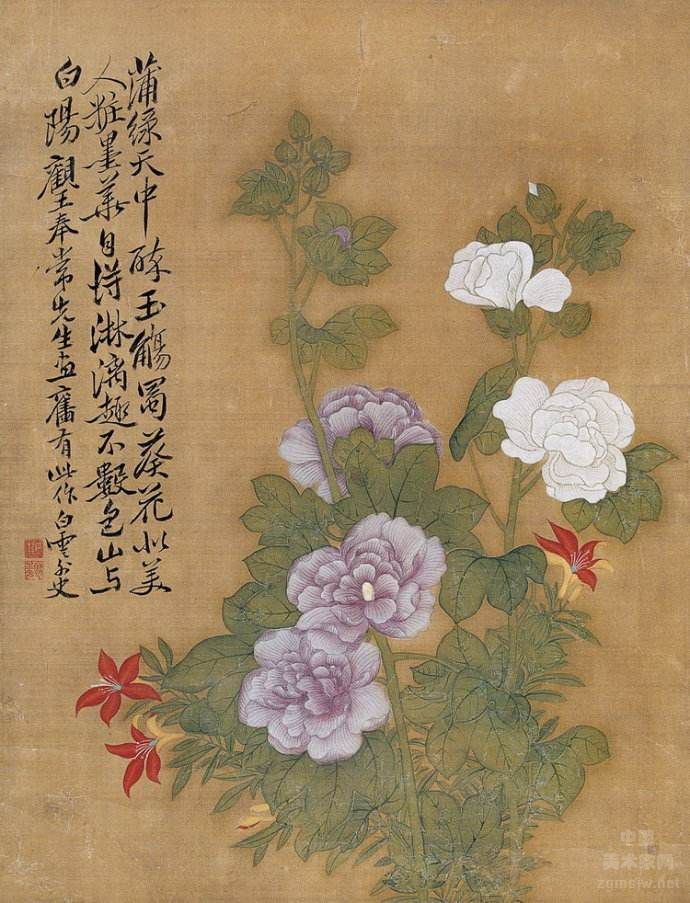 蒲緑天中醉玉觴蜀葵花似美
人粧墨華自得淋漓趣不數包山与
白陽 觀王奉常先生画舊有此作白雲外史
中国
美术家网
zgmsjw.net